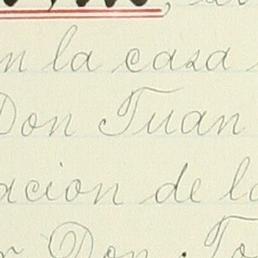 n la casa
Don Juan
acion de la
Don